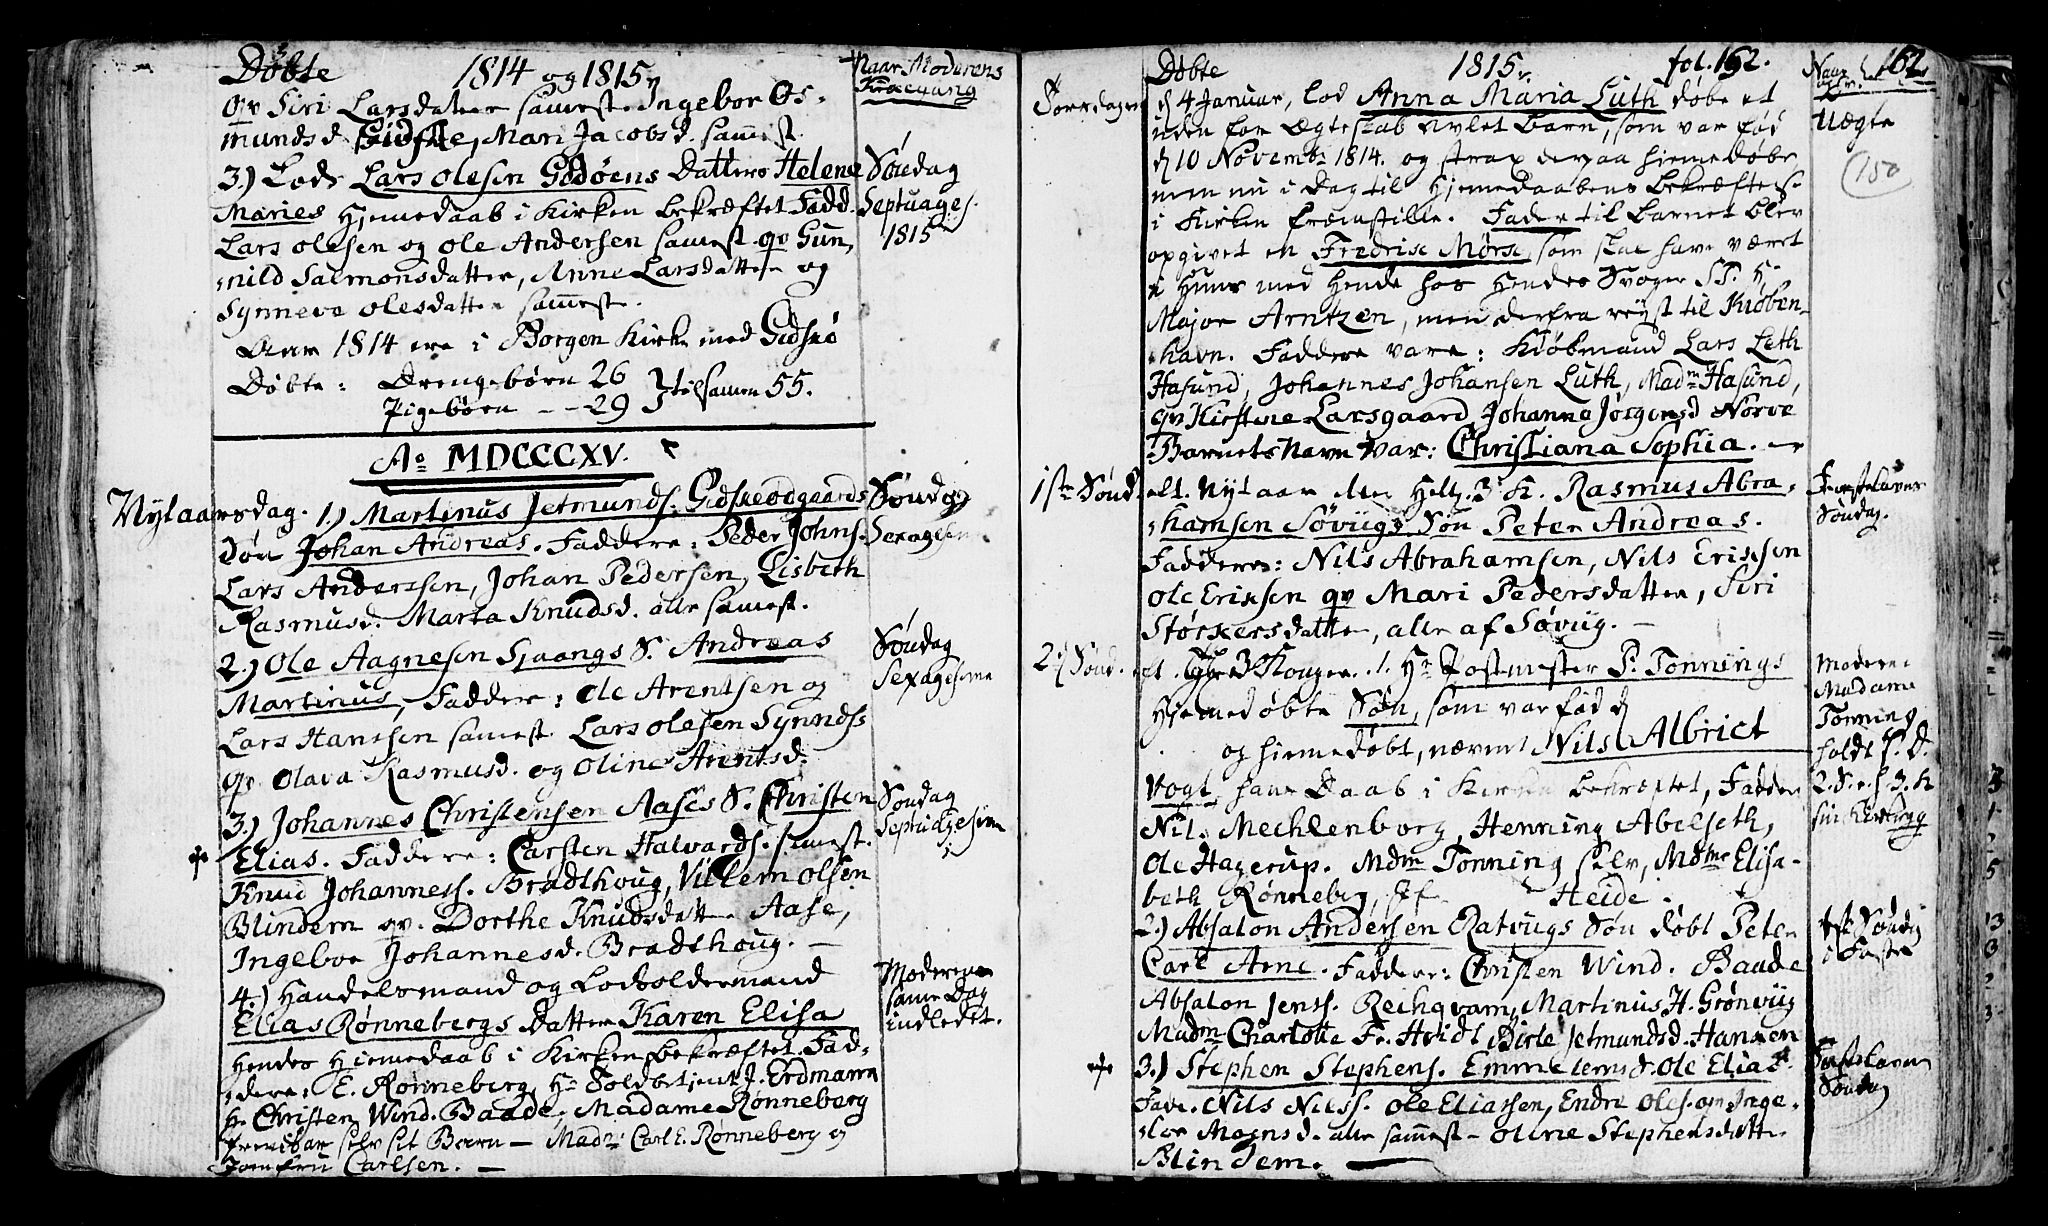 Døbte 1814 og 1815
Naar Moderens
Kirkegang
qv Siri Larsdatter samest. Ingebor Os-
munds d. Gidske, Mari Jacobsd. samest.
3.) Lods Lars Olesen Godøens Datters Helene
Maries Hjemedaab i Kirken bekræftet Fadd.
Lars Olesen og Ole Andersen samest. qv Gun,
nild Salmonsdatter, Anne Larsdatter og
Synneva Olesdatter samest.
Søndag
Septuages.
1815
Aar 1814 ere i Borgen Kirke med Gidskø
Døbte: Drengebørn 26
Pigebørn - - 29 } tilsamen 55.
Ao MDCCCXV.
Nytaarsdag. 1.) Martinus Jetmunds. Gidskeødgaards
Søn Johan Andreas. Faddere: Peder Johns.
Lars Anderssen, Johan Pedersen, Lisbeth
Rasmusd. Marta Knudsd. alle samest.
Søndag
Sexagesim
2.) Ole Aagnesen Sjaangs S. Andreas
Martinus, Faddere: Ole Arentsen og
Lars Hanssen samest. Lars Olesen Synnds
qv. Olava Rasmusd. og Oline Arentsd.
Søndag
Sexagesima
3.) Johannes Christensen Aases S. Christen
Elias. Faddere: Carsten Halvards. samest.
Knud Johanness. Bradthoug, Villem Olsen
Blindem qv. Dorthe Knudsdatt. Aase,
Ingebor Johannesd. Bradthoug. -
Søndag
Septuagesima
4.) Handelsmand og Lodsoldermand
Elias Rønnebergs Datter Karen Elisa
Hendes Hjemedaab i Kirken bekræftet. Fad-
dere: E. Rønneberg, Hr Toldbetjent J. Erdmann
Hr Christen Wind. Baade, Madame Rønneberg
frembar selv sit Barn - Madm Carl E. Rønneberg og
Jomfru Carlsen. -
Moderen
same Dag
indledet.
Døbte 1815. fol. 162. 162
Torsdagen
d 4 Januar, lod Anna Maria Luth døbe et
uden for Ægteskab avlet Barn, som var fød
d 10 Novembr 1814. og strax derpaa hiemedøbt
men nu i Dag til Hjemedaabens Bekræftelse
i Kirken fremstillet. Fader til Barnet blev
opgivet en Fredrik Mørse, som skal have været
i Huus med Hende hos Hendes Svoger S.T. Hr
Major Arntzen, men derfra reyst til Kiøben-
havn. Faddere vare: Kiøbmand Lars Leth
Hasund, Johannes Johansen Luth, Madm Hasund,
qv Kirstene Larsgaard, Johanne Jørgensd Nørve
Barnets Navn var: Christiana Sophia. -
Uægte
150
1ste Sønd. eft. Nytaar den Hell. 3 K. Rasmus Abra,
hamsen Søviigs Søn Peter Andreas.
Faddere: Nils Abrahamsen, Nils Erixsen
Ole Erixsen qv Mari Pedersdatter, Siri
Størkersdatter, alle af Søviig. -
Fastelavns
Søndag.
2. Sønd. eft. 3 Konger. 1. Hr Postmester P. Tonnings
Hjemedøbte Søn, som var fød d
og hiemedøbt, nævnt Nils Albrict
Vogt, hans Daab i Kirken bekræftet, Faddere
Nil. Mechlenborg, Henning Abelseth,
Ole Hagerup. Mdm Tonning selv, Mdme Elisa-
beth Rønneberg, Jf. Heide.
Moderen
Madame
Tonning
holdt S. D.
2. S. e. H. 3. K
sin Kirkegg
2.) Absalon Andersen Ratvugs Søn døbt Peter
Carl Arne. Faddere: Christen Wind. Baade
Absalon Jenss. Reihqvam, Martinus H. Grønviig
Madm Charlotte Fr. Hvidt Birte Jetmundsd. Hansen
1ste Søndag
i Faste
3.) Stephen Stephens. Emmelems S. Ole Elias.
Fadd. Nils Nilss. Ole Eliassen, Endre Oles. Inge-
bor Mognsd. alle samest - Oline Stephensdatter
Blindem. -
Fastelavns
Søndag